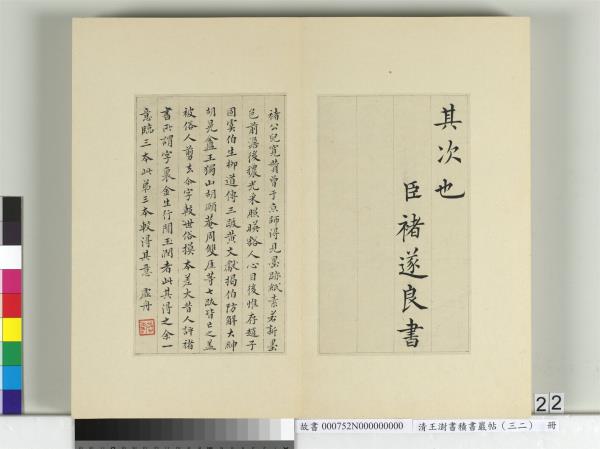 其次也
臣褚遂良書
褚公兒寬贊曾于京師得見墨跡紙素若新墨
色前濃後穠光采照暎豁人心目後惟存趙子
固實伯生柳道傳三跋黃文獻揭伯防解大紳
胡晃盦王獨山胡頤菴周雙厓等七跋皆已蓋
被俗人剪去合字較世俗摸本差大昔人評褚
書所謂字裏金生行間玉潤者此其得之余一
意臨三本此第三本較得其意 虛舟
故書 000752N000000000 清王澍書積書巖帖(三二) 冊
22